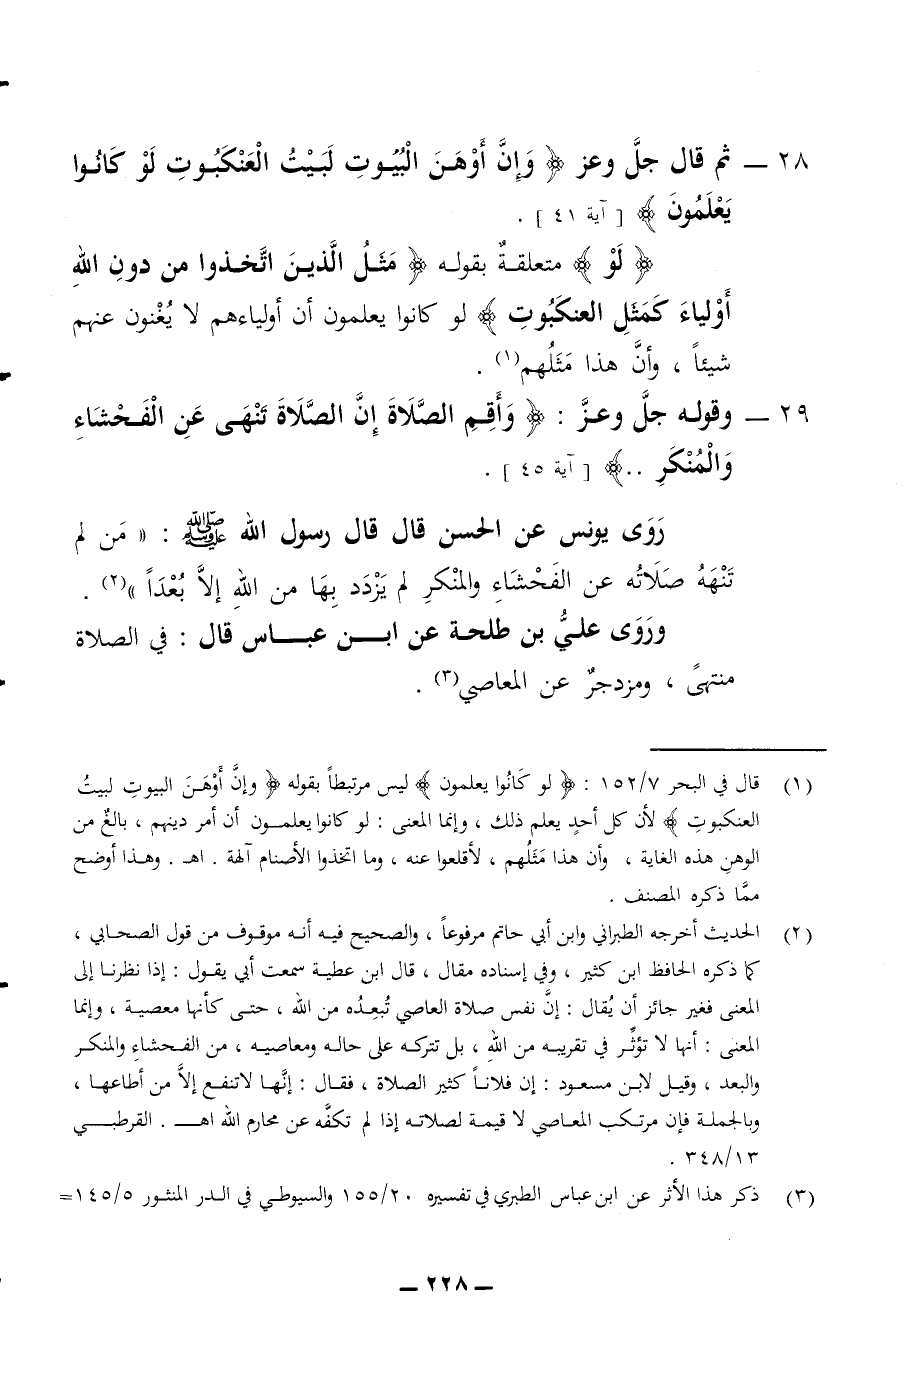 ٢٨ ـ ثم قال جلَّ وعز ﴿ وَإِنَّ أَوْهَنَ الْبُيُوتِ لَبَيْتُ الْعَنْكَبُوتِ لَوْ كَانُوا
يَعْلَمُونَ ﴾ [ آية ٤١ ] .
﴿ لَوْ ﴾ متعلقةٌ بقوله ﴿ مَثَلُ الَّذينَ اتَّخذوا من دونِ اللهِ
أَوْلياءَ كَمَثَلِ العنكَبُوتِ ﴾ لو كانوا يعلمون أن أولياءهم لا يُغْنون عنهم
شيئاً ، وأنَّ هذا مَثَلُهم(١) .
٢٩ ـ وقوله جلَّ وعزَّ : ﴿ وَأَقِمِ الصَّلَاةَ إِنَّ الصَّلَاةَ تَنْهَى عَنِ الْفَحْشَاءِ
وَالْمُنْكَرِ ..﴾ [ آية ٤٥ ] .
رَوَى يونس عن الحسن قال قال رسول الله ﷺ : « مَن لم
تَنْهَهُ صَلَاتُه عن الفَحْشَاءِ والمنْكرِ لم يَزْدَد بِهَا من اللهِ إلاَّ بُعْدَاً »(٢) .
ورَوَى عليُّ بن طلحة عن ابن عباس قال : في الصلاة
منتهىً ، ومزدجرٌ عن المعاصي(٣) .
(١) قال في البحر ١٥٢/٧ : ﴿ لو كَانُوا يعلمون ﴾ ليس مرتبطاً بقوله ﴿ وإنَّ أَوْهَنَ البيوتِ لبيتُ
العنكبوتِ ﴾ لأن كل أحدٍ يعلم ذلك ، وإنما المعنى : لو كانوا يعلمون أن أمر دينهم ، بالغٌ من
الوهنِ هذه الغاية ، وأن هذا مَثَلُهم ، لأقلعوا عنه ، وما اتخذوا الأصنام آلهة . اهـ . وهذا أوضح
ممَّا ذكره المصنف .
(٢) الحديث أخرجه الطبراني وابن أبي حاتم مرفوعاً ، والصحيح فيه أنه موقوف من قول الصحابي ،
كما ذكره الحافظ ابن كثير ، وفي إسناده مقال ، قال ابن عطية سمعت أبي يقول : إذا نظرنا إلى
المعنى فغير جائز أن يُقال : إنَّ نفس صلاة العاصي تُبعِدُه من الله ، حتى كأنها معصية ، وإنما
المعنى : أنها لا تؤثِّر في تقريبه من اللهِ ، بل تتركه على حاله ومعاصيه ، من الفحشاء والمنكر
والبعد ، وقيل لابن مسعود : إن فلاناً كثير الصلاة ، فقال : إنَّها لاتنفع إلاَّ من أطاعها ،
وبالجملة فإن مرتكب المعاصي لا قيمة لصلاته إذا لم تكفَّه عن محارم الله اهـ . القرطبي
٣٤٨/١٣ .
(٣) ذكر هذا الأثر عن ابن عباس الطبري في تفسيره ١٥٥/٢٠ والسيوطي في الدر المنثور ١٤٥/٥=
ـ ٢٢٨ ـ